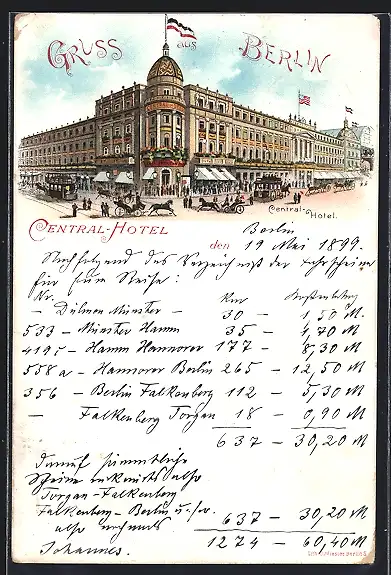 GRUSS aus BERLIN
Central-Hotel.
CENTRAL-HOTEL
Berlin
den 19 Mai 1899.
Nachfolgend das Verzeichniß der Fahrscheine
für Reise:
Nr. Km
— Dülmen Münster — 30 — 1,50 M.
533 — Münster Hamm 35 — 1,70 M
419 — Hamm Hannover 177 — 8,30 M
558a — Hannover Berlin 265 — 12,50 M
356 — Berlin Falkenberg 112 — 5,30 M
— Falkenberg Torgau 18 — 0,90 M
637 — 30,20 M
darauf sämmtliche
Scheine also
Torgau-Falkenberg
Falkenberg-Berlin u.s.w.
also 637 — 30,20 M
Johannes. 1274 — 60,40 M